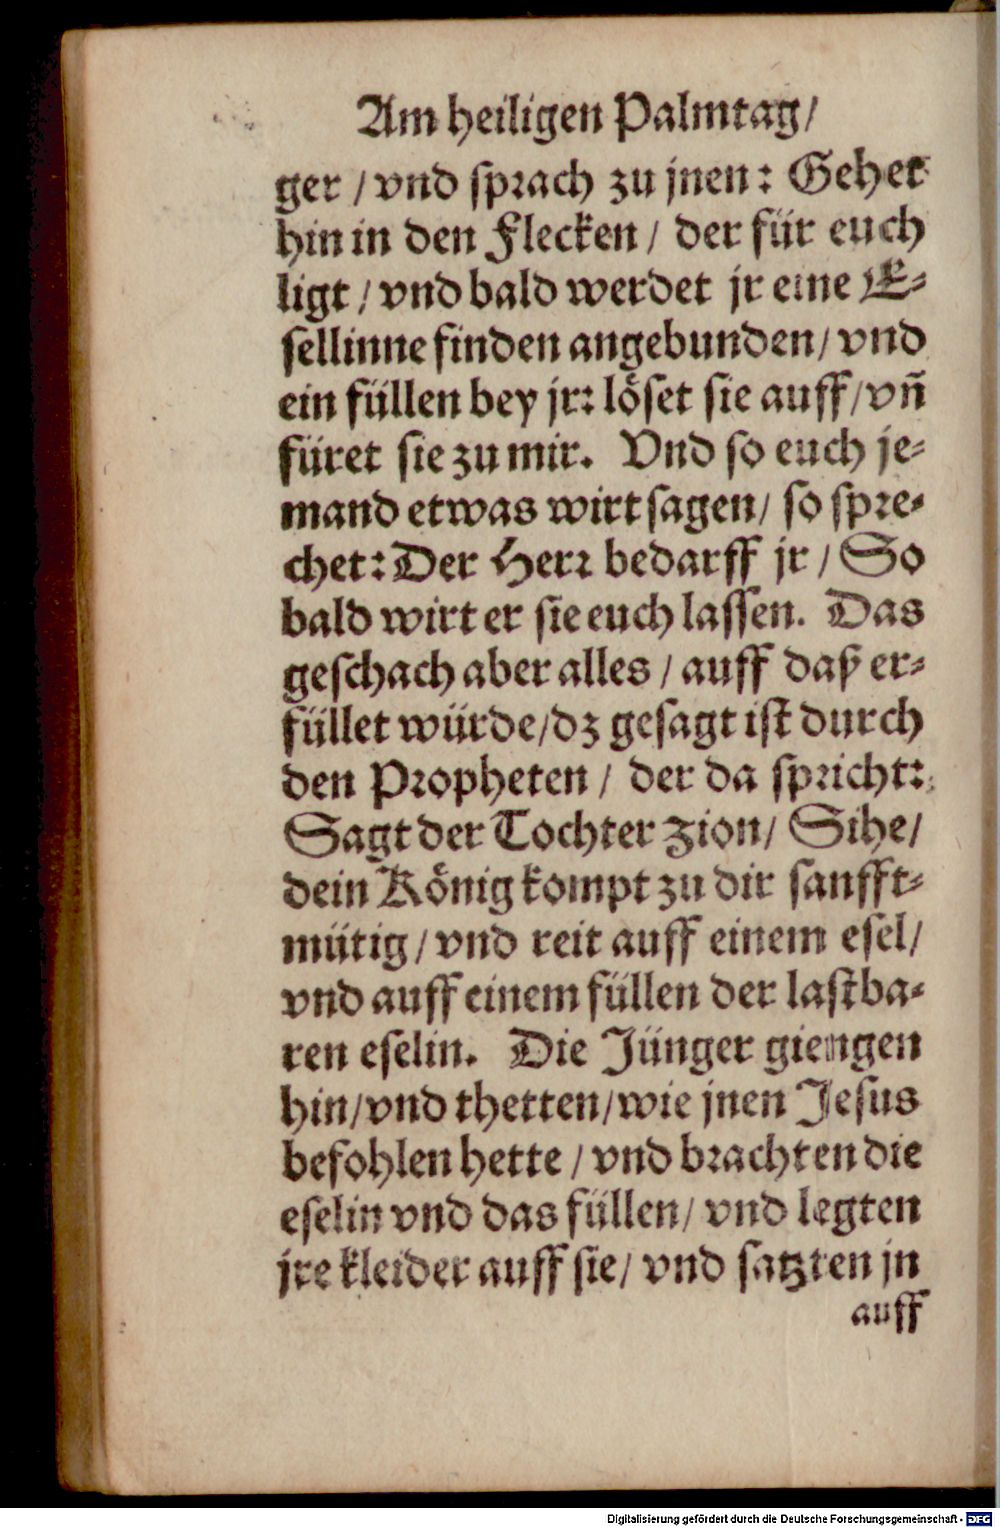 Am heiligen Palmtag/
ger / vnd sprach zu jnen: Gehet
hin in den Flecken / der für euch
ligt / vnd bald werdet jr eine E-
sellinne finden angebunden/ vnd
ein füllen bey jr: löset sie auff/ vñ
füret sie zu mir. Vnd so euch je-
mand etwas wirt sagen/ so spre-
chet: Der Herr bedarff jr / So
bald wirt er sie euch lassen. Das
geschach aber alles / auff daß er-
füllet würde/ dz gesagt ist durch
den Propheten / der da spricht:
Sagt der Tochter Zion/ Sihe/
dein König kompt zu dir sanfft-
mütig/ vnd reit auff einem esel/
vnd auff einem füllen der lastba-
ren eselin. Die Jünger giengen
hin/ vnd thetten/ wie jnen Jesus
befohlen hette / vnd brachten die
eselin vnd das füllen/ vnd legten
jre kleider auff sie/ vnd satzten jn
auff
Digitalisierung gefördert durch die Deutsche Forschungsgemeinschaft - DFG